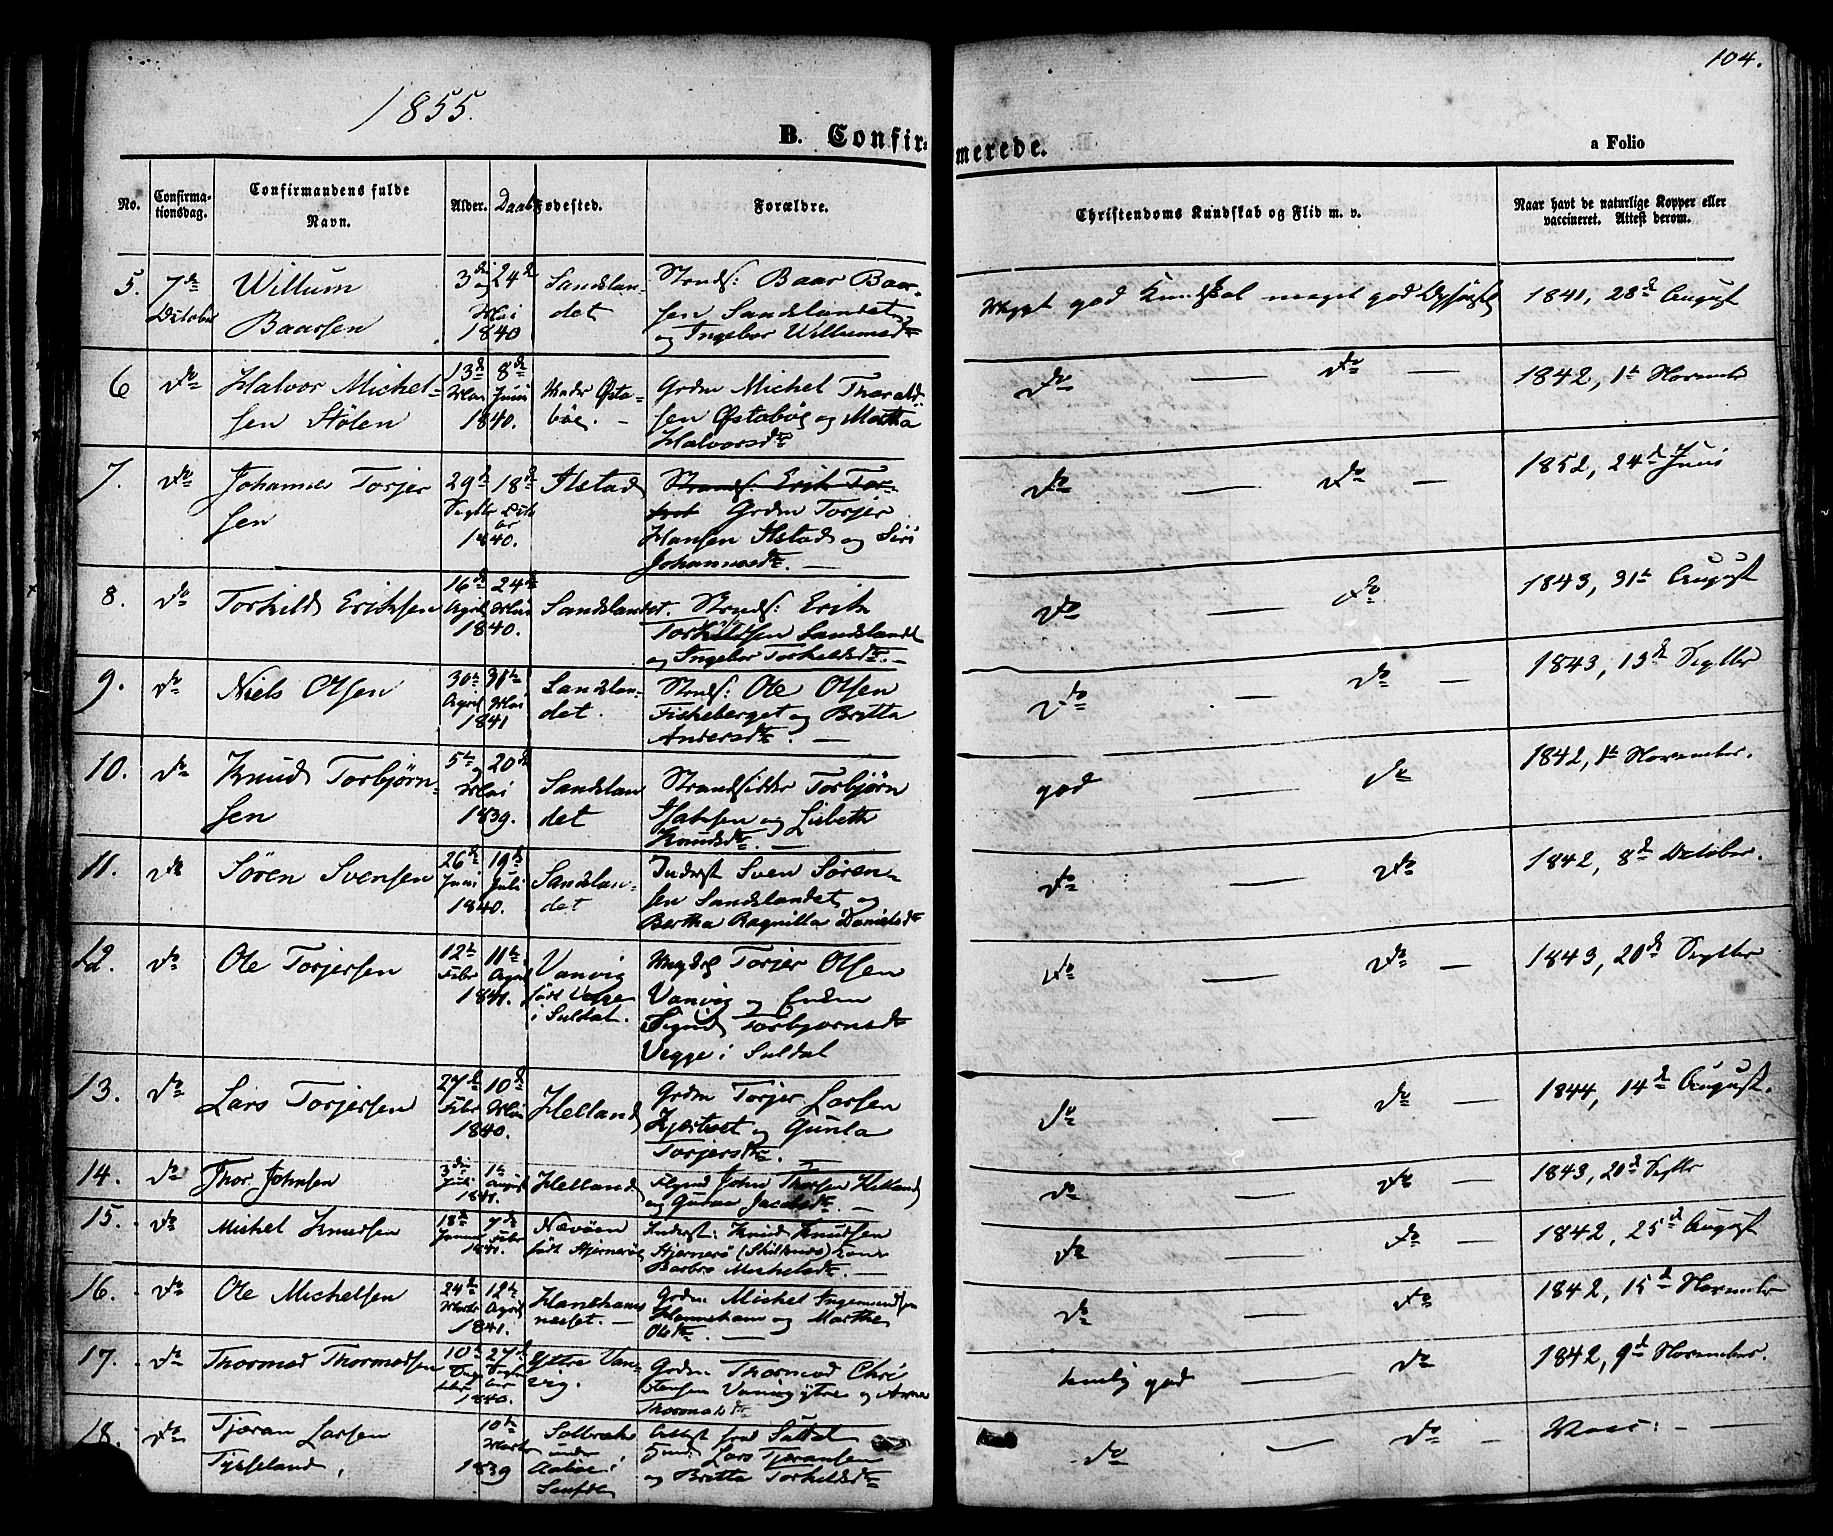 104.
1855.
B. Confir= merede. a Folio
No. Confirma=tionsdag. Confirmandens fulde Navn. Alder. Daab Fødested. Forældre. Christendoms Kundskab og Flid m. v. Naar havt de naturlige Kopper eller vaccineret. Attest derom.
5. 7de October Willum Baarsen 3die og 24de Mai 1840 Sandslan-det Strds: Baar Baar-sen Sandslandet og Ingebor Willumsdtr Meget god Kundskab meget god Opførsel 1841, 28de August
6 do Halvor Michel-sen Stølen 13de Mai 8de Juni 1840. Under Østa-bøe. Grdm Michel Tharald-sen Østabøe og Martha Halvorsdtr do — do — 1842, 1te Novembr
7. do Johannes Torjer sen 29de Septbr 18de Octo ber 1840. Ilstad Strds. Erik Tor- Grdm Torjer Hansen Ilstad og Siri Johannesdtr. do — do — 1852, 24de Juni
8. do Torkild Eriksen 16de April 24de Mai 1840. Sandslandet. Strds: Erik Torkildsen Sandslandet og Ingebor Torkildsdtr. do — do 1843, 31te August
9. do Niels Olsen 30te April 31te Mai 1841 Sandslan-det. Strds: Ole Olsen Fiskeberget og Britta Andersdtr. do — do — 1843, 13de Septbr
10. do Knud Torbjørn-sen 5te og 20de Mai 1839. Sandslan det Strandsidder Torbjørn Isaksen og Lisbeth Knudsdtr. god — do 1842, 1te November.
11. do Søren Svensen 26de Juni 19de Juli 1840. Sandslan-det Inderst Sven Søren-sen Sandslandet og Bertha Ragnilla Danielsdtr do — do 1842, 8de October.
12. do Ole Torjersen 12te Febr 11te April 1841. Vanvig født Vegge i Suldal. Ungkarl Torjer Olsen Vanvig og Enken Signe Torbjørnsdtr Vegge i Suldal do — do — 1843, 20de Septbr
13. do Lars Torjersen 27de Febr 10de Mai 1840. Helland Grdm Torjer Larsen Kjøstvet og Gunla Torjersdtr. do — do — 1844, 14de August.
14. do Thor Johnsen 3die Juli 1te August 1841. Helland John Thorsen Helland og Guroe Jacobsdtr. do — do — 1843, 20de Septbr
15. do Michel Knudsen 18de Januar 7de Febr 1841. Nævøen født Hjerner Inderst: Knud Knudsen Hjernerø kone Barbro Michelsdtr. do — do — 1842, 25de August
16. do Ole Michelsen 24de Marts 12te April 1841. Hanekam nesset. Grdm Michel Ingemundsen Hannekam og Marthe Olsdtr. do — do 1842, 15de Novembr
17. do Thormod Thormodsen 10de Sep tbr 27de Septem ber 1840. Yttre Van-vig. Grdm Thormod Chri stensen Vanvig ytre og Anna Thormodsdtr temlig god — do 1842, 9de November.
18. do Tjøran Larsen Tysseland, 10de Marts 1839 Solbrekke under Aaboe i Attest fra Suldal Lars Tjøransen og Britta Torkildsdtr do — do — —